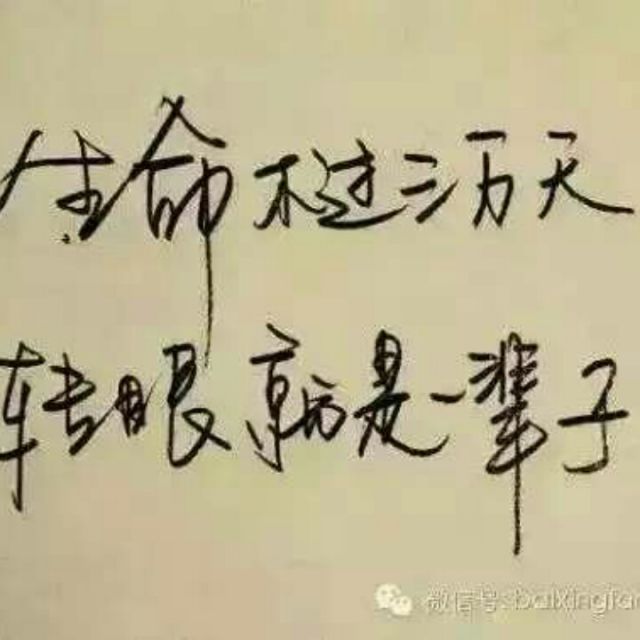 生命不过三万天
转眼就是一辈子
微信号: baixingfa